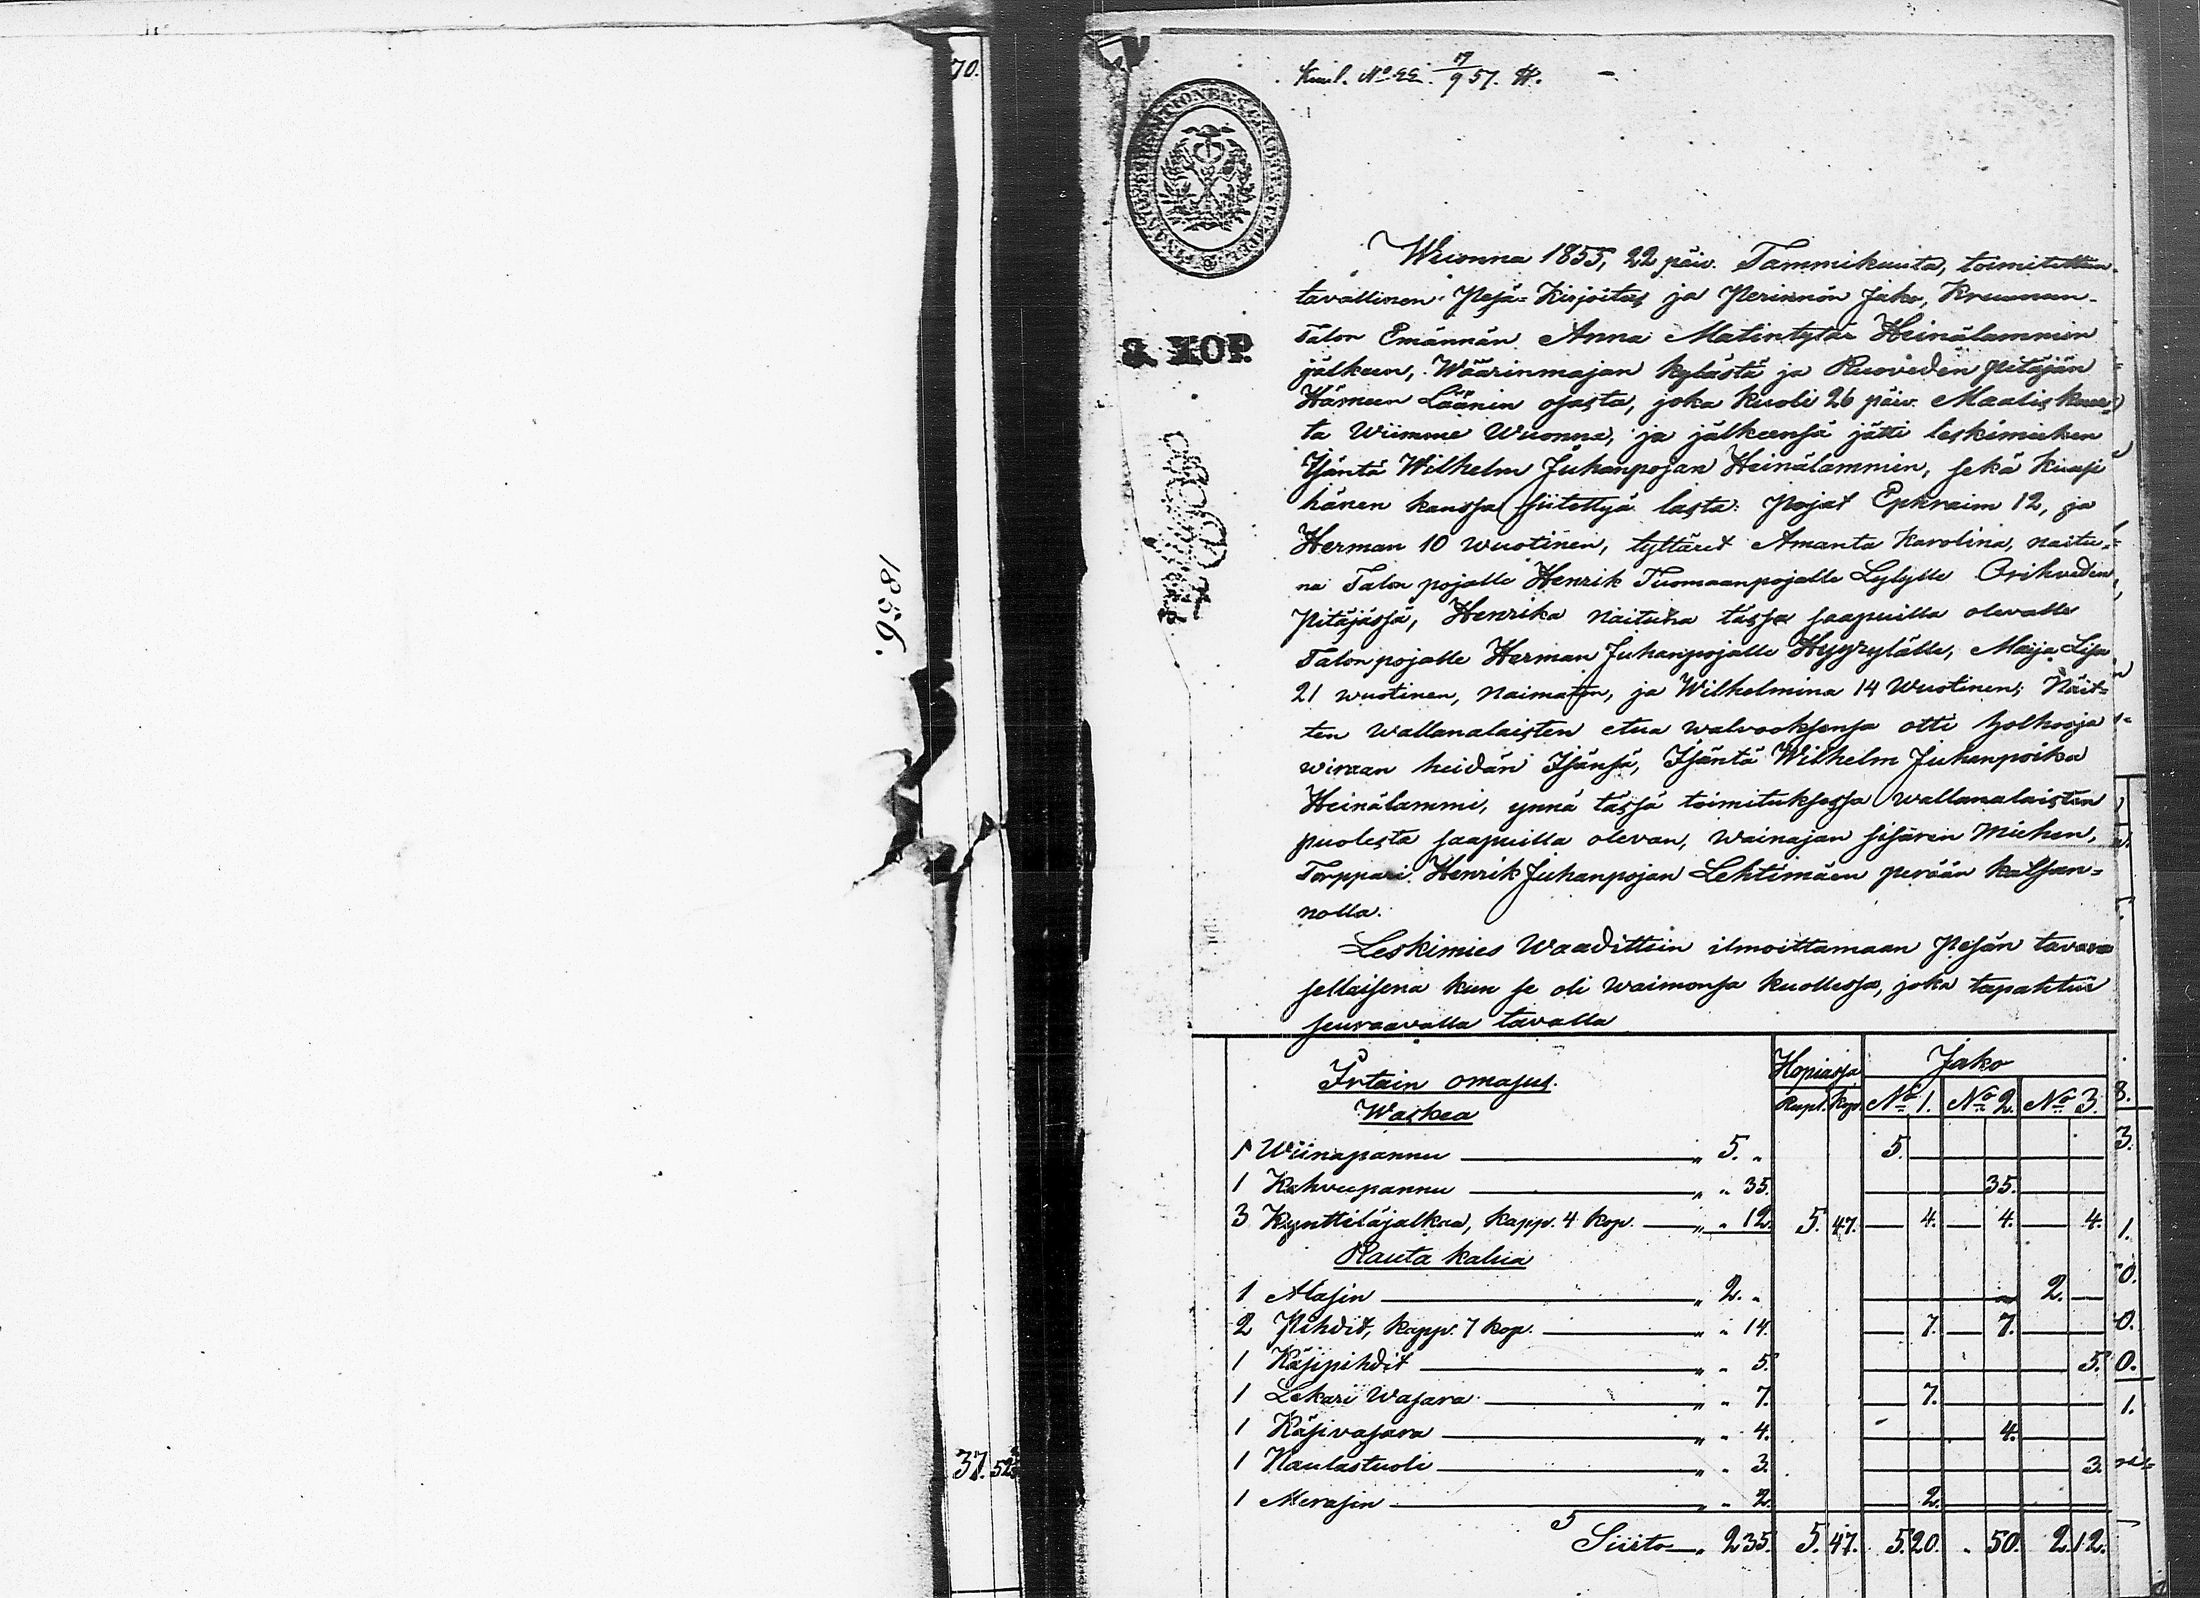 70.
1856.
37. 52
N:o 22. 17/9 57.
3. KOP.
Wuonna 1855, 22 päiv. Tammikuuta, toimitettiin
tavallinen Pesä-Kirjoitus ja Perinnön Jako, Kruunun-
Talon Emännän Anna Matintytär Heinälammin
jälkeen, Wäärinmajan kylästä ja Ruoveden Pitäjän
Hämeen Läänin osasta, joka kuoli 26 päiv. Maaliskuu-
ta Wiimme Wuonna, ja jälkeensä jätti leskimiehen
Isäntä Wilhelm Juhanpojan Heinälammin, sekä kuusi
hänen kanssa siitettyä lasta: Pojat Ephraim 12, ja
Herman 10 Wuotinen, tyttäret Amanta Karolina, naitu-
na Talon pojalle Henrik Tuomaanpojalle Lylylle Oriheden
Pitäjässä, Henrika naituna tässä saapuilla olevalle
Talon pojalle Herman Juhanpojalle Hyyrylälle, Maija Lisa
21 wuotinen, naimaton, ja Wilhelmina 14 Wuotinen; Näit-
ten Wallanalaisten etua walvooksensa otti holhooja
wiraan heidän Isänsä, Isäntä Wilhelm Juhanpoika
Heinälammi, ynnä tässä toimituksessa Wallanalaisten
puolesta saapuilla olevan, Wainajan sisären Miehen,
Torppari Henrik Juhanpojan Lehtimäen perään katsan-
nolla.
Leskimies Waadittiin ilmoittamaan Pesän tavara
sellaisena kun se oli Waimonsa kuollessa, joka tapahtui
seuraavalla tavalla
Irtain omasus. Hopiassa Jako
Waskea Rupl. Kop. No 1. No 2. No 3.
1 Wiinapannu " 5. " 5.
1 Kahveepannu " " 35. 35.
3 Kynttiläjalkaa, kapp. 4 kop. " " 12. 5. 47. 4. 4. 4.
Rauta kalua
1 Alasin " 2. " 2.
2 Pihdit, kapp. 7 kop. " " 14. 7. 7.
1 Käsipihdit " " 5. 5.
1 Lekari Wasara " " 7. 7.
1 Käsivasara " " 4. 4.
1 Naulastuoli " " 3. 3.
1 Merasin " " 2. 2.
Siirto " 2 35. 5. 47. 5. 20. " 50. 2. 12.